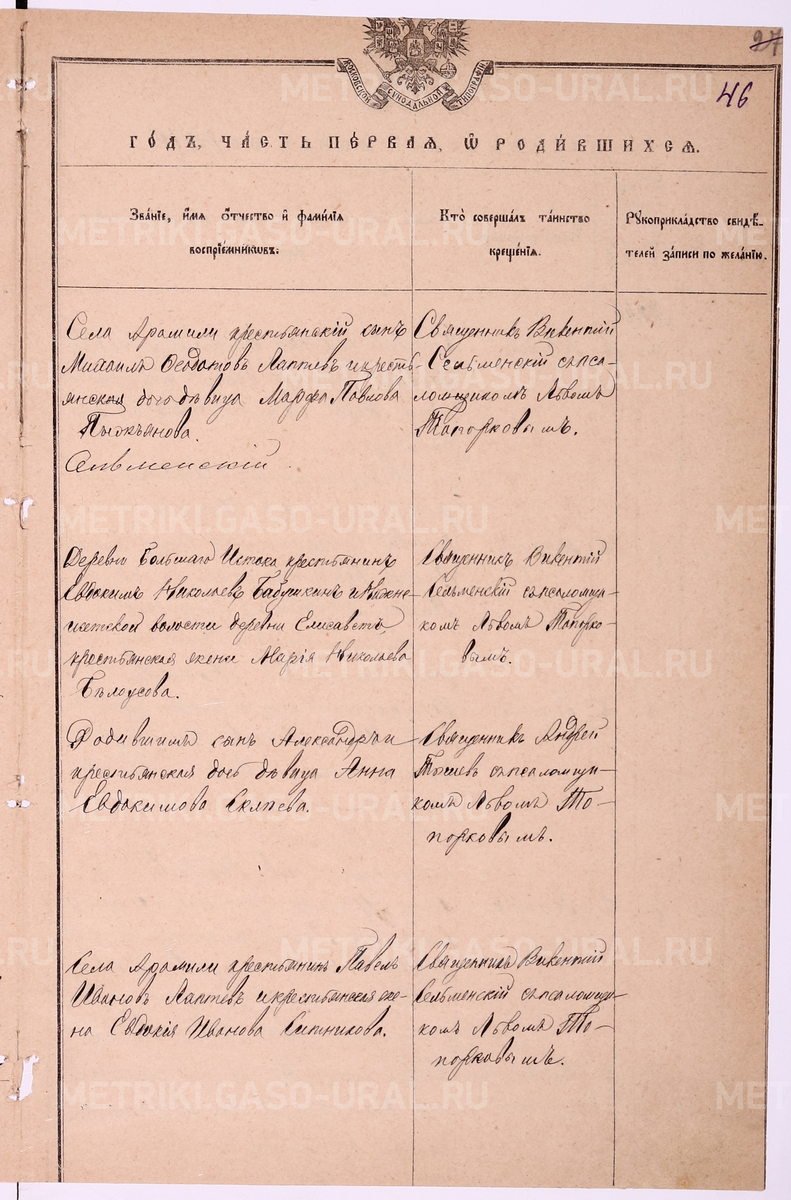 27
46
МОСКОВСКОЙ СѴНОДАЛЬНОЙ ТИПОГРАФІИ
ГО́ДЪ, ЧА́СТЬ ПЕ́РВАѦ, Ѡ҆ РОДИ́ВШИХСѦ.
Зва́нїе, и҆́мѧ ѻ҆́тчество и҆ фами́лїѧ
воспрїе́мникѡвъ.
Кто̀ соверша́лъ та́инство
креще́нїѧ.
Рꙋкоприкла́дство свидѣ́-
телей за́писи по жела́нїю.
Села Арамили крестьянскій сынъ
Михаилъ Ѳеодотовъ Лаптевъ и кресть-
янская дочь дѣвица Марфа Павлова
Пьянкова.
Сельменскій.
Священникъ Викентій
Сельменскій съ пса-
ломщикомъ Львомъ
Топорковымъ.
Деревни Большаго Истока крестьянинъ
Евдокимъ Николаевъ Бабушкинъ и Нижне-
исетской волости деревни Елисаветъ,
крестьянская жена Марія Николаева
Бѣлоусова.
Священникъ Викентій
Сельменскій съ псаломщи-
комъ Львомъ Топорко-
вымъ.
сынъ Александръ и
крестьянская дочь дѣвица Анна
Евдокимова
Священникъ Андрей
съ псаломщи-
комъ Львомъ То-
порковымъ.
Села Арамили крестьянинъ Павелъ
Ивановъ Лаптевъ и крестьянская же-
на Евдокія Иванова Ситникова.
Священникъ Викентій
Сельменскій съ псаломщи-
комъ Львомъ То-
порковымъ.
METRIKI.GASO-URAL.RU